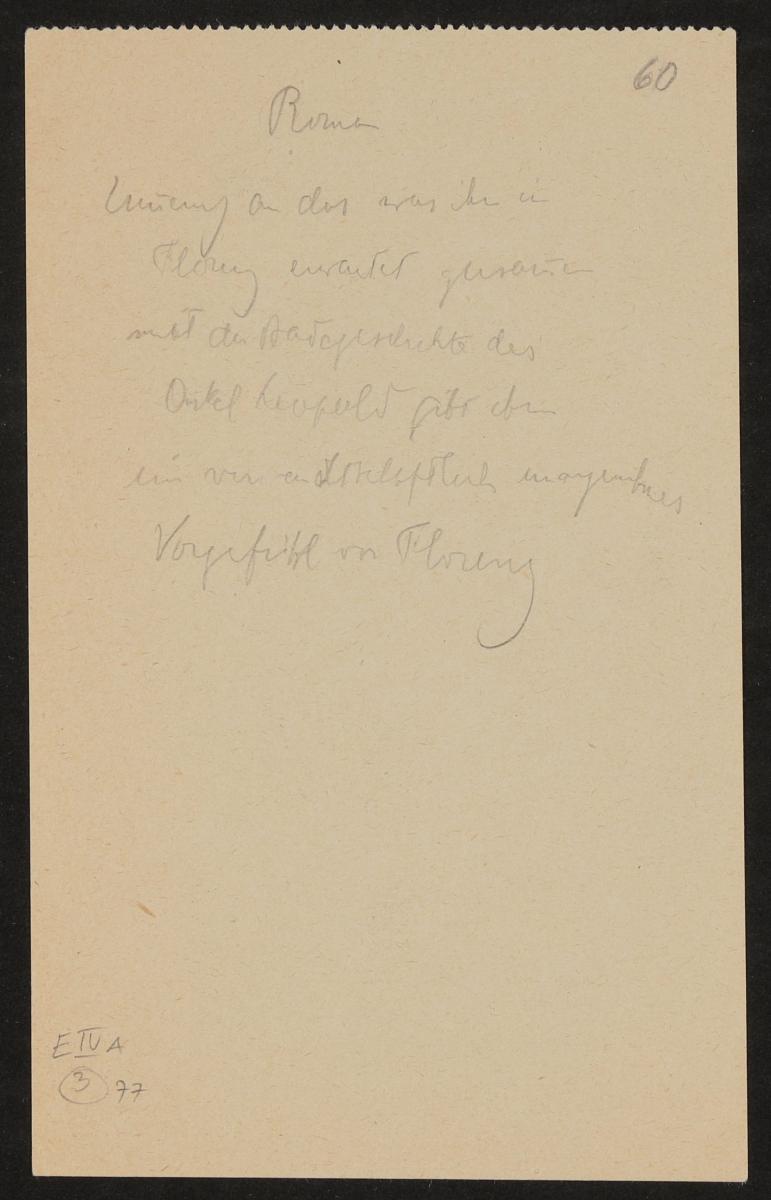 60
Roman
an das was ihn in
Florenz erwartet zusammen
mit der Badegeschichte des
Onkel Leopold gibt ihm
ein
Vorgefühl von Florenz
E IV A
3 77